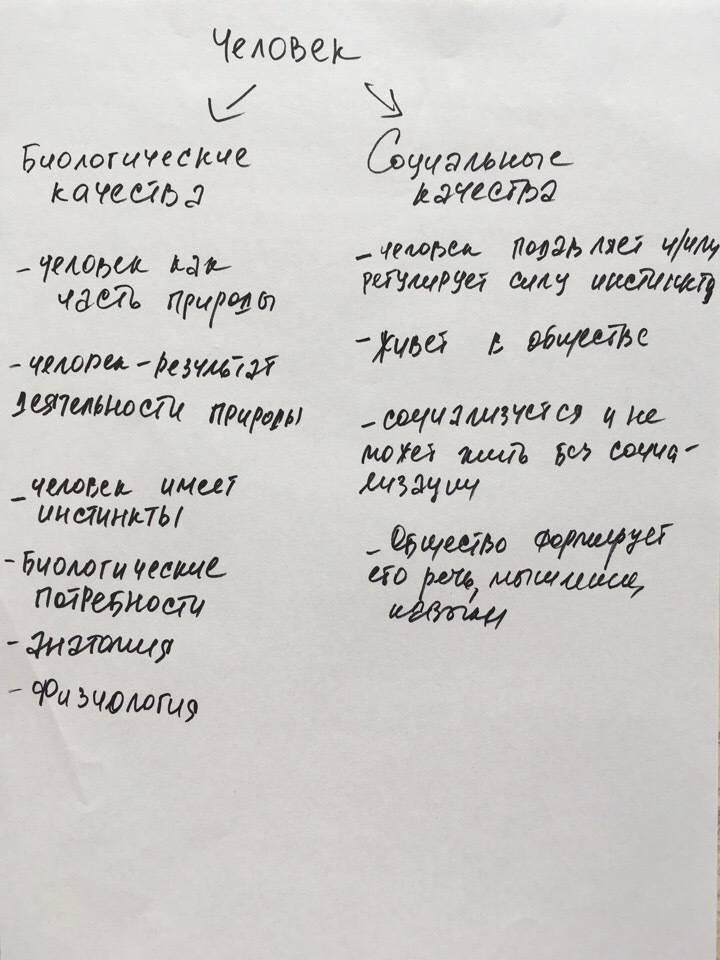 Человек
Биологические
качества
- человек как
часть природы
- человек - результат
деятельности природы
- человек имеет
инстинкты
- Биологические
потребности
- Анатомия
- Физиология
Социальные
качества
- человек подавляет и/или
регулирует силу инстинкта
- живет в обществе
- социализуется и не
может жить без социа-
лизации
- Общество формирует
его речь, мышление,
навыки